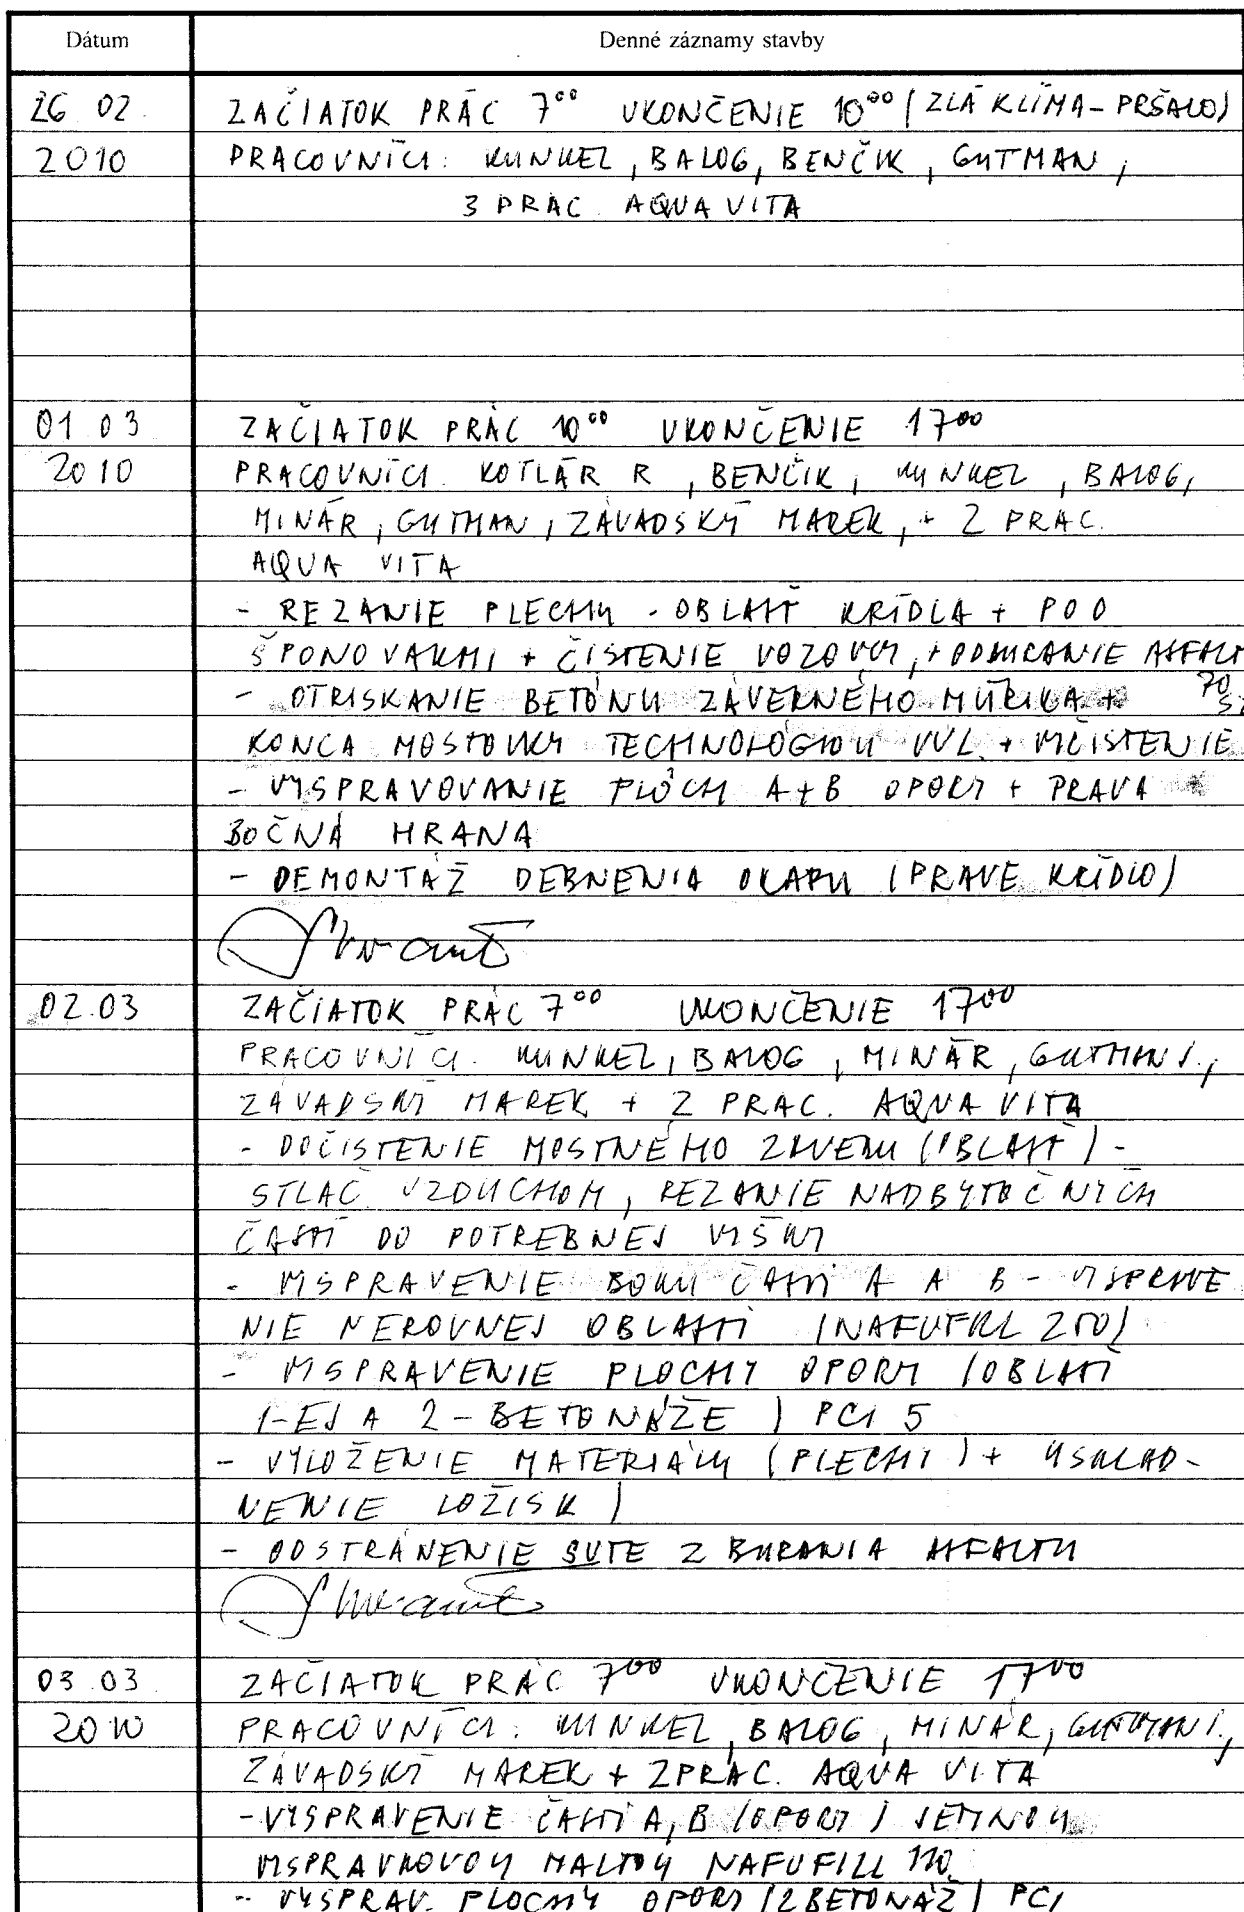 Dátum Denné záznamy stavby
26 02 ZAČIATOK PRÁC 7⁰⁰ UKONČENIE 10⁰⁰ (ZLÁ KLÍMA - PRŠALO)
2010 PRACOVNÍCI: KUNKEL, BALOG, BENČIK, GUTMAN,
3 PRAC. AQUA VITA
01 03 ZAČIATOK PRÁC 10⁰⁰ UKONČENIE 17⁰⁰
2010 PRACOVNÍCI. KOTLÁR R, BENČIK, KUNKEL, BALOG,
MINÁR, GUTMAN, ZÁVADSKÝ MAREK, + 2 PRAC.
AQUA VITA
- REZANIE PLECHU - OBLASŤ KRÍDLA + POD
ŠPONOVAKMI + ČISTENIE VOZOVKY, + ODBURANIE ASFALT
- OTRISKANIE BETÓNU ZÁVERNÉHO MÚRIKA +
KONCA MOSTOVKY TECHNOLÓGIOU VVL + VYČISTENIE
- VYSPRAVOVANIE PLÔCH A+B OPORY + PRAVA
BOČNÁ HRANA
- DEMONTÁŽ DEBNENIA OKAPU (PRAVE KRÍDLO)
02.03 ZAČIATOK PRÁC 7⁰⁰ UKONČENIE 17⁰⁰
PRACOVNÍCI. KUNKEL, BALOG, MINÁR, GUTMAN J.,
ZÁVADSKÝ MAREK + 2 PRAC. AQUA VITA
- DOČISTENIE MOSTNÉHO ZAVERU (OBLASŤ) -
STLAČ. VZDUCHOM, REZANIE NADBYTOČNÝCH
ČASTÍ DO POTREBNEJ VÝŠKY
- VYSPRAVENIE BOKU ČASTI A A B - VYSPRAVE
NIE NEROVNEJ OBLASTI (NAFUFILL 250)
- VYSPRAVENIE PLOCHY OPORY (OBLASŤ
1-EJ A 2-BETONÁŽE) PCI 5
- VYLOŽENIE MATERIÁLU (PLECHY) + USKLAD-
NENIE LOŽISK)
- ODSTRÁNENIE SUTE Z BURANIA ASFALTU
03.03 ZAČIATOK PRÁC 7⁰⁰ UKONČENIE 17⁰⁰
2010 PRACOVNÍCI: KUNKEL, BALOG, MINÁR, GUTMAN J.,
ZÁVADSKÝ MAREK + 2PRAC. AQUA VITA
- VYSPRAVENIE ČASTI A, B (OPORY) JEMNOU
VYSPRAVKOVOU MALTOU NAFUFILL 110
- VYSPRAV. PLOCHY OPORY (2 BETONÁŽ) PCI